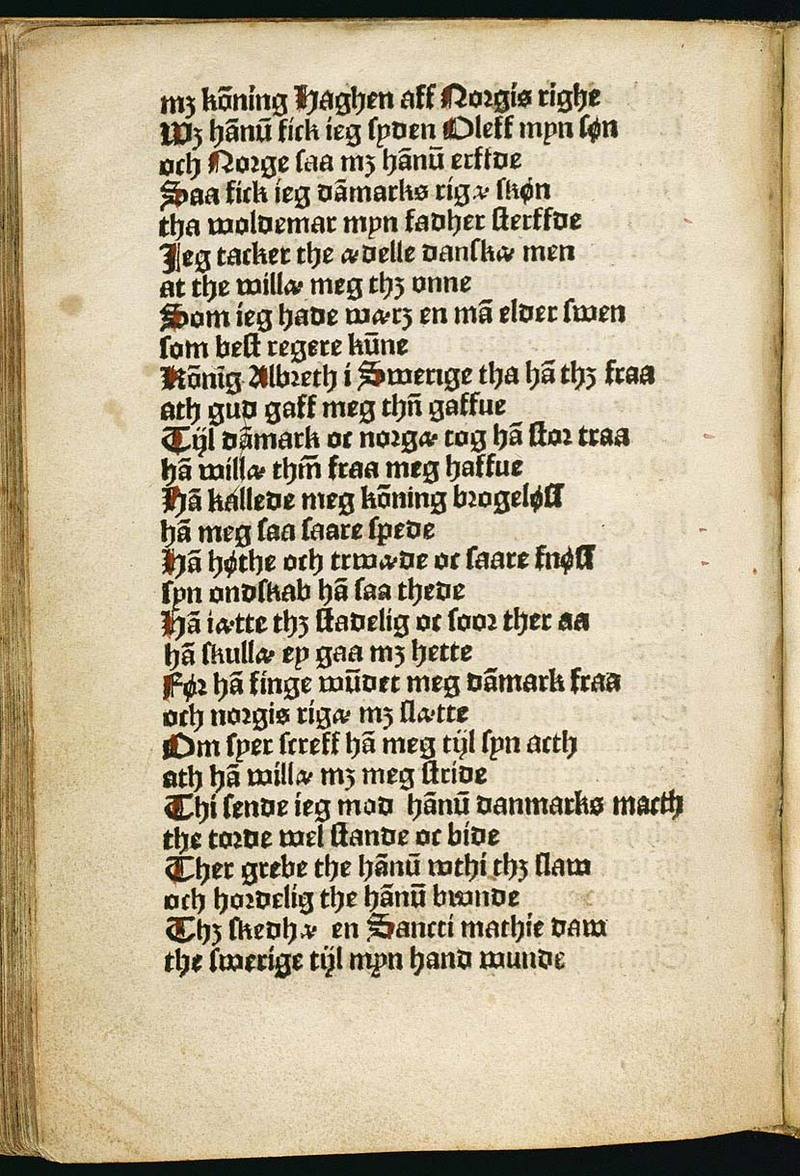 mꝫ kōning Haghen aff Norgis righe
Wꝫ hānū fick ieg syden Oleff myn søn
och Norge saa mꝫ hānū erffde
Saa fick ieg dāmarks rigæ skøn
tha woldemar myn fadher sterffde
Jeg tacker the ædelle danskæ men
at the willæ meg thꝫ vnne
Som ieg hade wærꝫ en mā elder swen
som best regere kūne
Kōnīg Albreth i Swerige tha hā thꝫ fraa
ath gud gaff meg thn̄ gaffue
Tijl dāmark oc norgæ tog hā stor traa
hā willæ thm̄ fraa meg haffue
Hā kallede meg kōning brogeløss
hā meg saa saare spede
Hā høthe och trwæde oc saare fnøss
syn ondskab hā saa thede
Hā iætte thꝫ stadelig oc soor ther aa
hā skullæ ey gaa mꝫ hette
Før hā finge wūdet meg dāmark fraa
och norgis rigæ mꝫ slætte
Om syer screff hā meg tijl syn acth
ath hā willæ mꝫ meg stride
Thi sende ieg mod hānū danmarks macth
the torde wel stande oc bide
Ther grebe the hānū wthi thꝫ slaw
och hordelig the hānū bwnde
Thꝫ skedhæ en Sancti mathie daw
the swerige tijl myn hand wunde